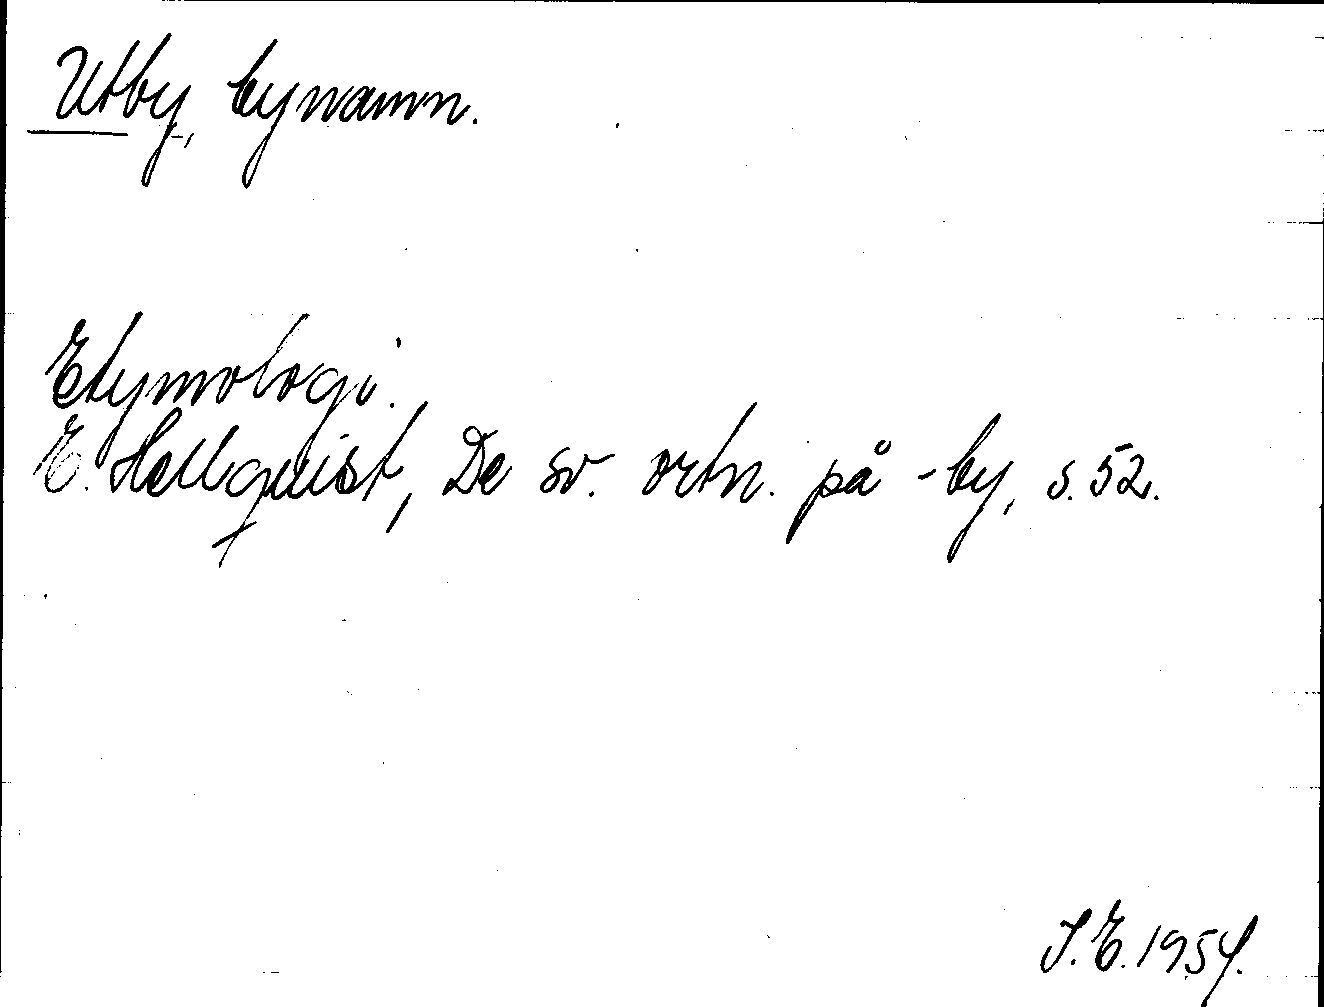 Utby, bynamn.
Etymologi.
E. Hellquist, De sv. ortn. på -by, s. 52.
S. E. 1954.